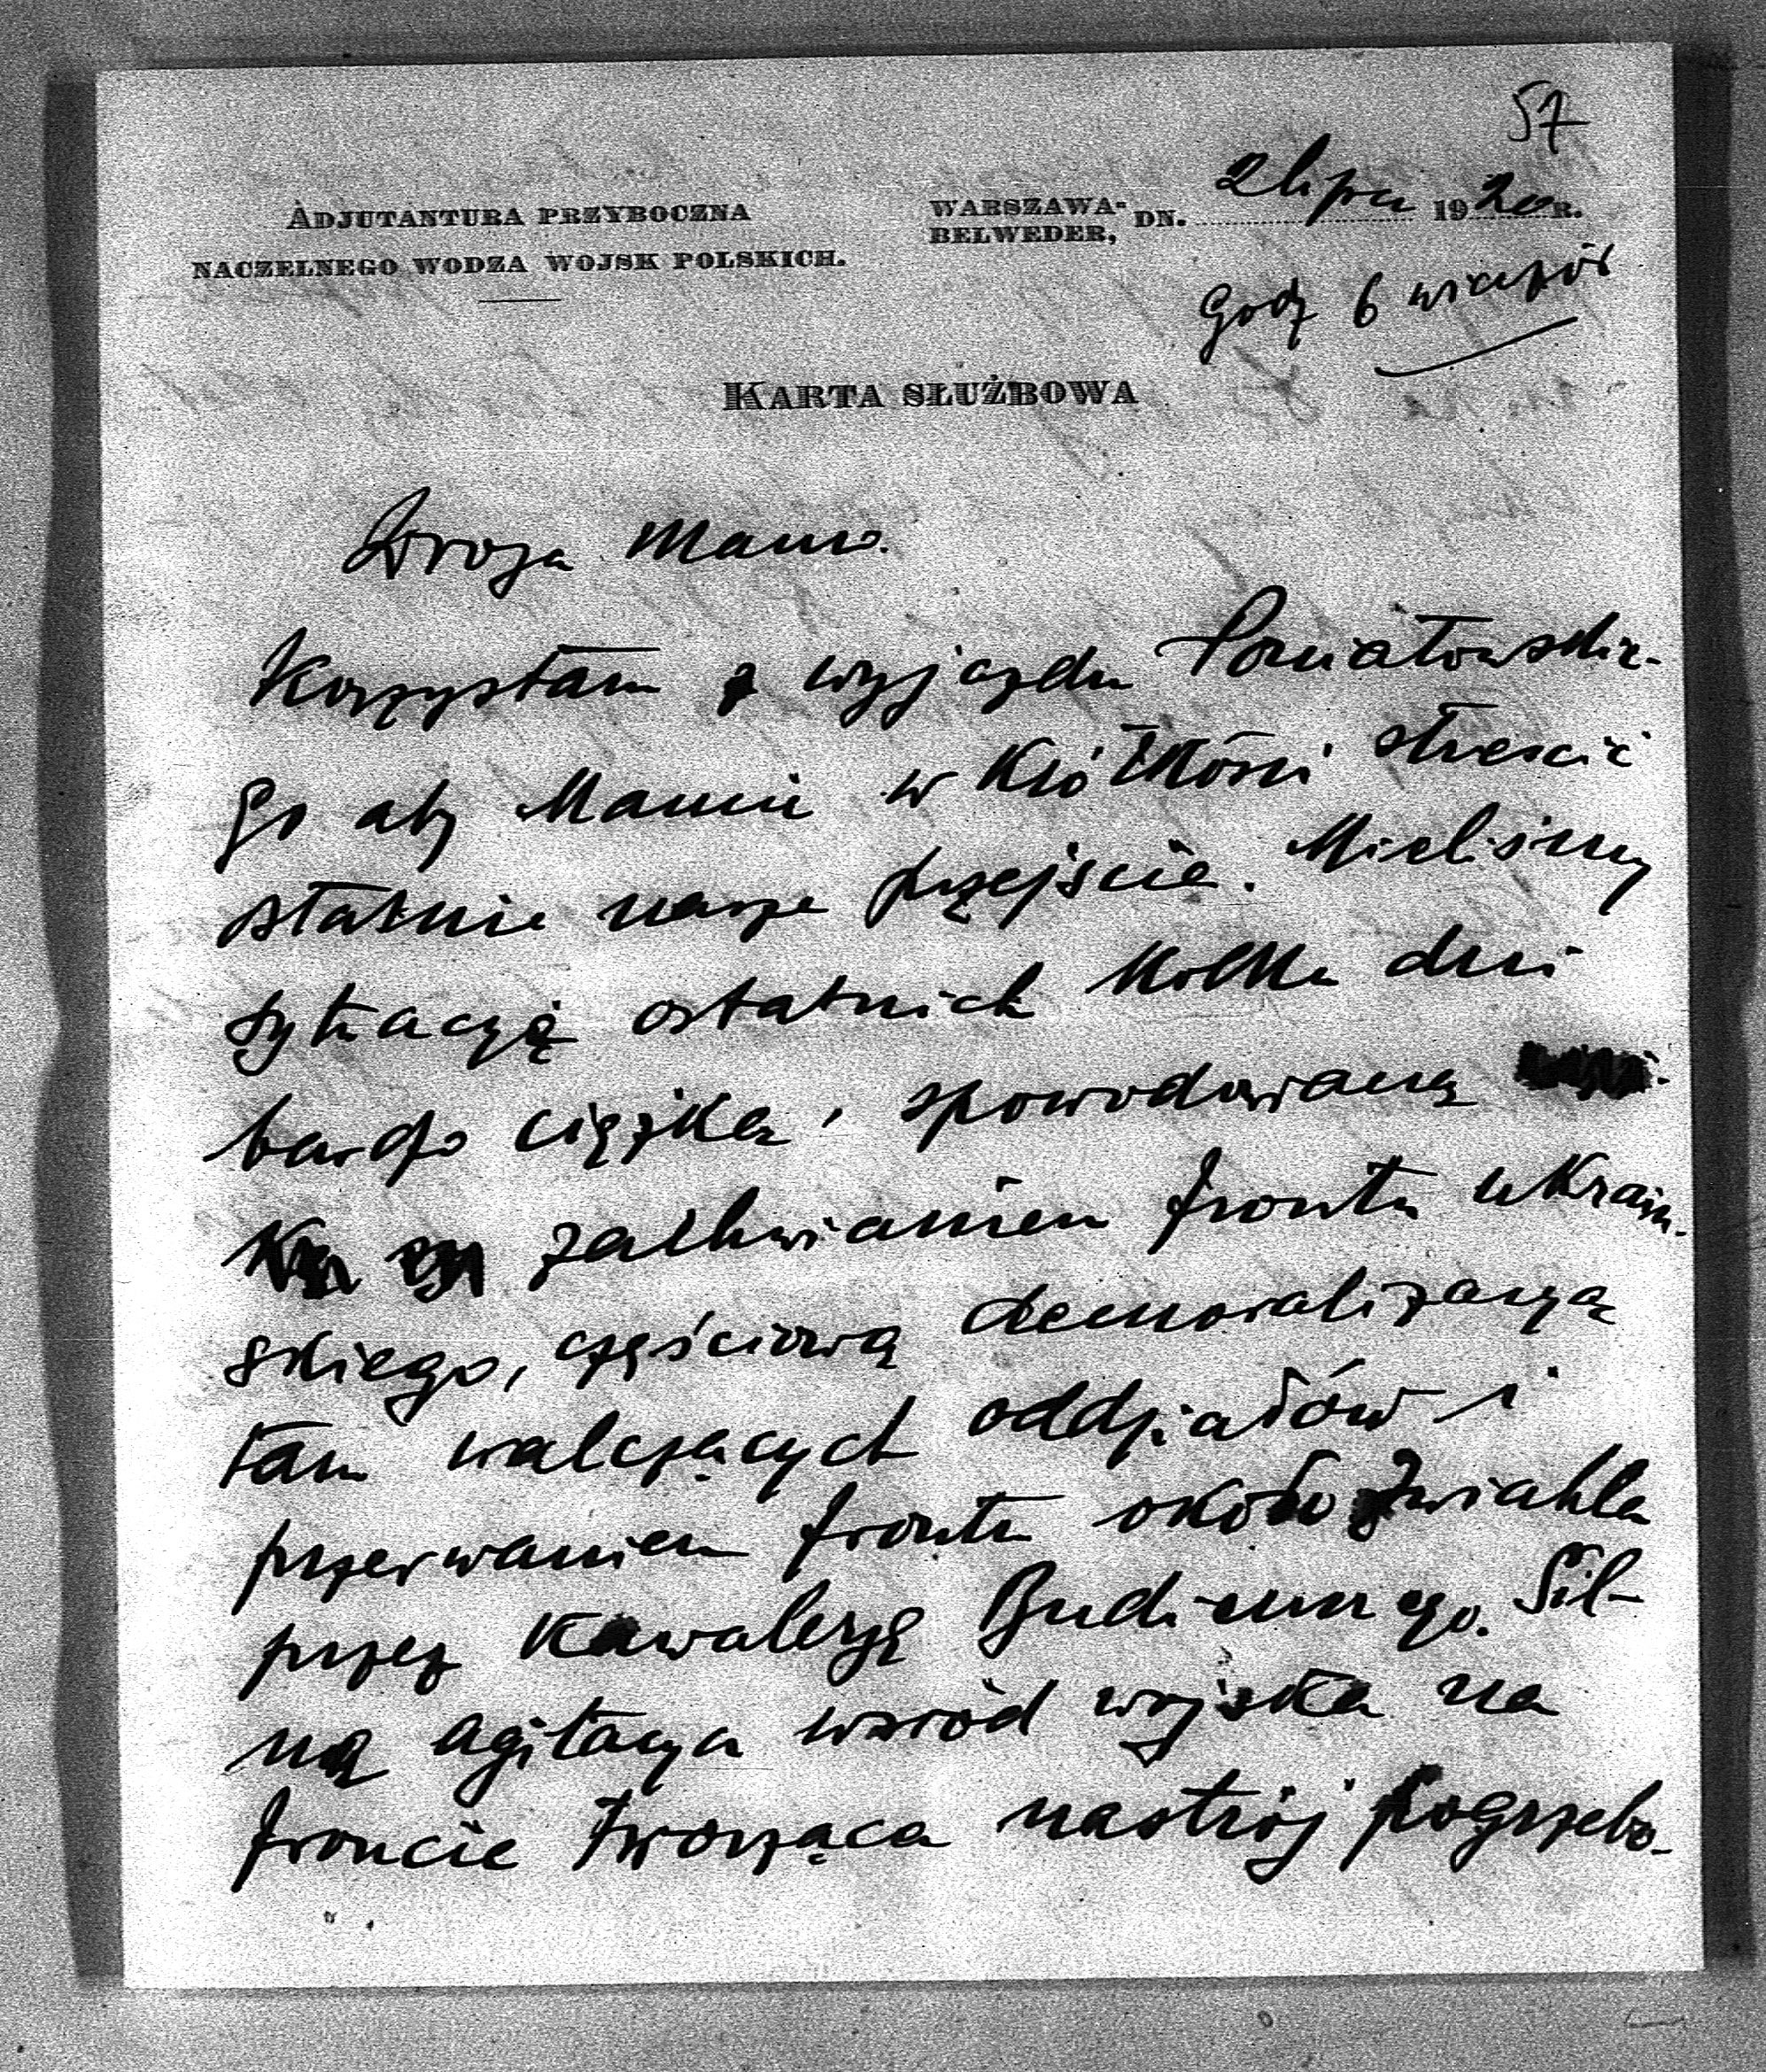 57
ADJUTANTURA PRZYBOCZNA
NACZELNEGO WODZA WOJSK POLSKICH.
WARSZAWA-
BELWEDER, DN. 2 lipca 1920 R.
Godz 6 wieczór
KARTA SŁUŻBOWA
Droga Mamo.
Korzystam z wyjazdu Poniatowskie-
go aby Mamie w krótkości streścić
statnie nasze przejście. Mieliśmy
sytuację ostatnich kilka dni
bardzo ciężką, spowodowaną
zachwianiem frontu ukraiń-
skiego, częściową demoralizacyą
tam walczących oddziałów i
przerwaniem frontu około Zwiahla
przez kawaleryę Budiennego. Sil-
ną agitacya wśród wojska na
froncie tworząca nastrój pogrzebo-